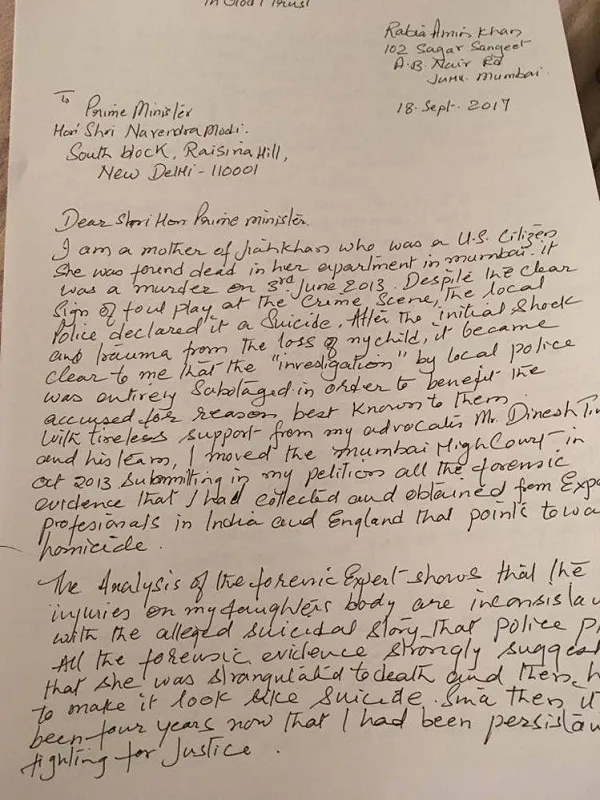 In God I Trust
Rabia Amin Khan
102 Sagar Sangeet
A.B. Nair Rd
Juhu. Mumbai.
18. Sept. 2017
To
Prime Minister
Hon' Shri Narendra Modi.
South block, Raisina Hill,
New Delhi - 110001
Dear Shri Hon Prime minister.
I am a mother of Jiahkhan who was a U.S. Citizen
She was found dead in her apartment in mumbai. it
was a murder on 3rd June 2013. Despite the clear
Sign of foul play at the Crime Scene, the local
Police declared it a Suicide. After the initial shock
and trauma from the loss of my child, it became
clear to me that the "investigation" by local police
was entirely Sabotaged in order to benefit the
accused for reason best known to them.
With tireless support from my advocates Mr. Dinesh
and his team, I moved the Mumbai High Court in
Oct 2013 Submitting in my petition all the forensic
evidence that I had collected and obtained from
profesionals in India and England that points
homicide.
The Analysis of the forensic Expert shows that the
injuries on my daughters body are
with the alleged suicidal story that police
All the forensic evidence strongly
that she was strangulated to death and then
to make it look like Suicide. then
been four years now that I had been
fighting for Justice.